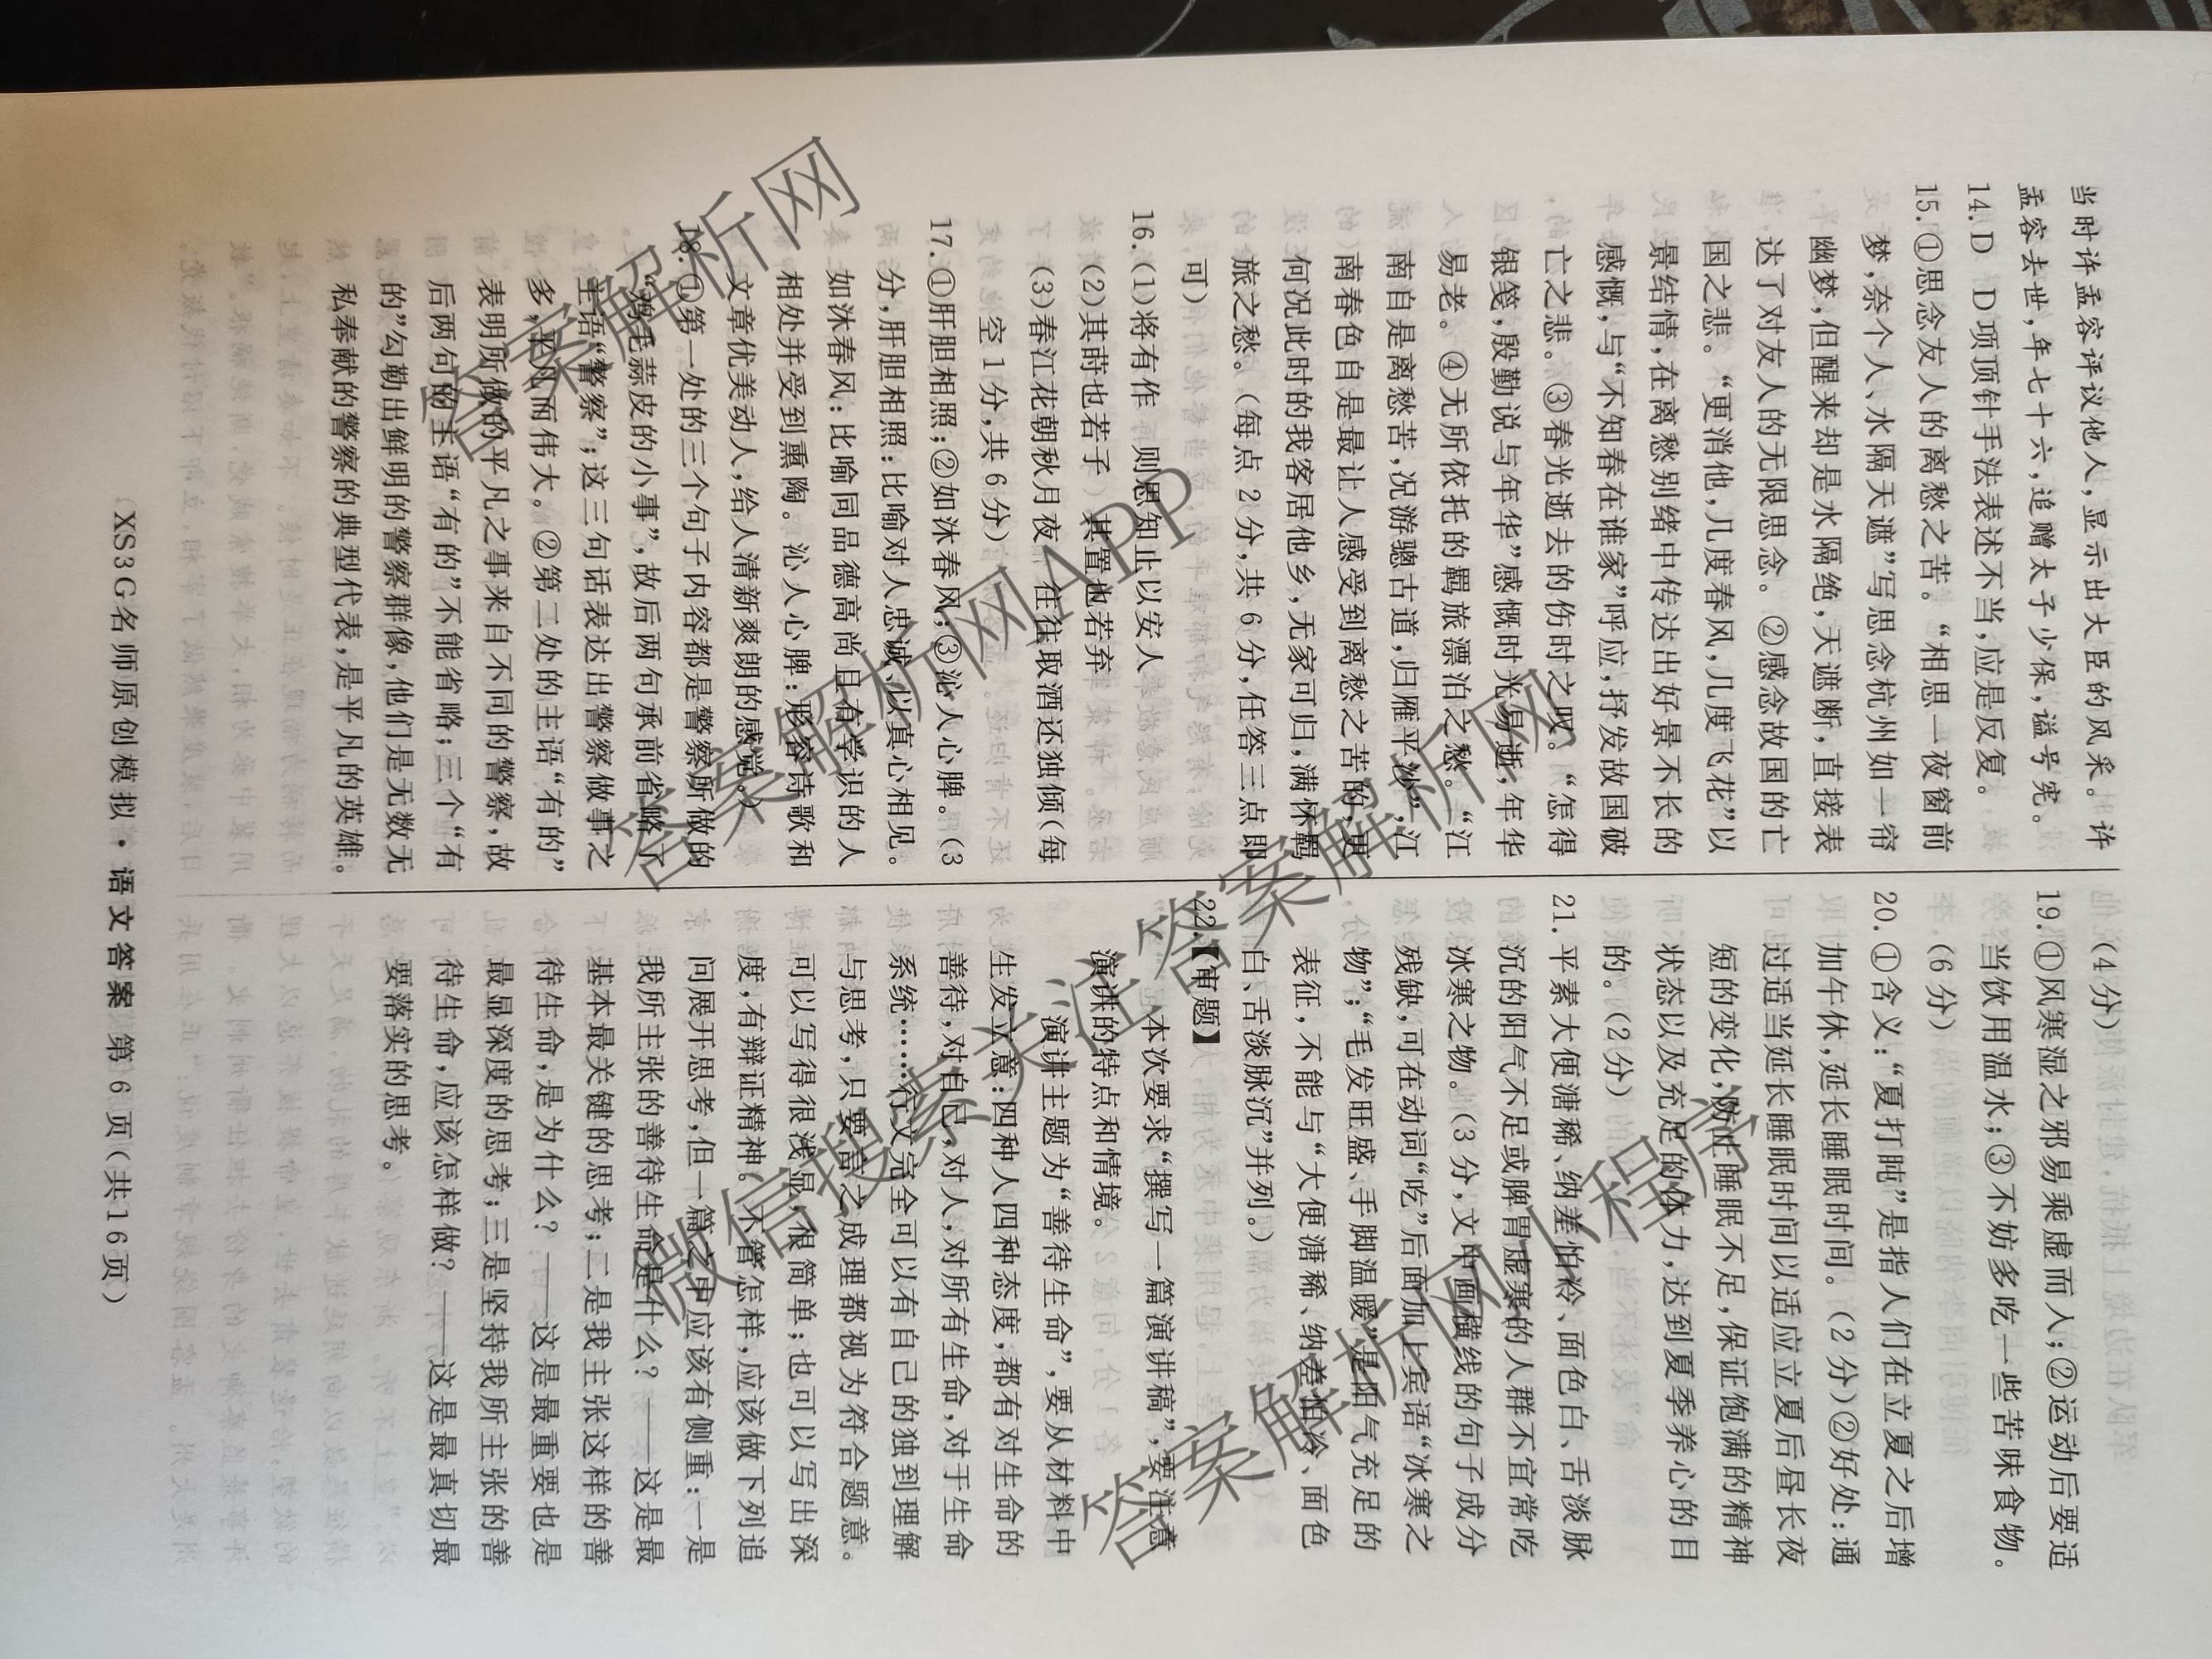 当时许孟容评议他人,显示出大臣的风采。许
孟容去世,年七十六,追赠太子少保,谥号宪。
14.D D项顶针手法表述不当,应是反复。
15.①思念友人的离愁之苦。“相思一夜窗前
梦,奈个人、水隔天遮”写思念杭州如一帘
幽梦,但醒来却是水隔绝,天遮断,直接表
达了对友人的无限思念。②感念故国的亡
国之悲。“更消他,几度春风,几度飞花”以
景结情,在离愁别绪中传达出好景不长的
感慨,与“不知春在谁家”呼应,抒发故国破
亡之悲。③春光逝去的伤时之叹。“怎得
银笺,殷勤说与年华”感慨时光易逝,年华
易老。④无所依托的羁旅漂泊之愁。“江
南自是离愁苦,况游骢古道,归雁平沙”,江
南春色自是最让人感受到离愁之苦的,更
何况此时的我客居他乡,无家可归,满怀羁
旅之愁。(每点2分,共6分,任答三点即
可)
16.(1)将有作 则思知止以安人
(2)其莳也若子 其置也若弃
(3)春江花朝秋月夜 往往取酒还独倾(每
空1分,共6分)
17.①肝胆相照;②如沐春风;③沁人心脾。(3
分,肝胆相照:比喻对人忠诚,以真心相见。
如沐春风:比喻同品德高尚且有学识的人
相处并受到熏陶。沁人心脾:形容诗歌和
文章优美动人,给人清新爽朗的感觉。)
18.①第一处的三个句子内容都是警察所做的
“鸡毛蒜皮的小事”,故后两句承前省略了
主语“警察”;这三句话表达出警察做事之
多,平凡而伟大。②第二处的主语“有的”
表明所做的平凡之事来自不同的警察,故
后两句的主语“有的”不能省略;三个“有
的”勾勒出鲜明的警察群像,他们是无数无
私奉献的警察的典型代表,是平凡的英雄。
(4分)
19.①风寒湿之邪易乘虚而人;②运动后要适
当饮用温水;③不妨多吃一些苦味食物。
(6分)
20.①含义:“夏打盹”是指人们在立夏之后增
加午休,延长睡眠时间。(2分)②好处:通
过适当延长睡眠时间以适应立夏后昼长夜
短的变化,防止睡眠不足,保证饱满的精神
状态以及充足的体力,达到夏季养心的目
的。(2分)
21.平素大便溏稀、纳差怕冷、面色白、舌淡脉
沉的阳气不足或脾胃虚寒的人群不宜常吃
冰寒之物。(3分,文中画横线的句子成分
残缺,可在动词“吃”后面加上宾语“冰寒之
物”;“毛发旺盛、手脚温暖”是阳气充足的
表征,不能与“大便溏稀、纳差怕冷、面色
白、舌淡脉沉”并列。)
22.【审题】
本次要求“撰写一篇演讲稿”,要注意
演讲的特点和情境。
演讲主题为“善待生命”,要从材料中
生发立意:四种人四种态度,都有对生命的
善待,对自己,对人,对所有生命,对于生命
系统……行文完全可以有自己的独到理解
与思考,只要言之成理都视为符合题意。
可以写得很浅显,很简单;也可以写出深
度,有辩证精神。不管怎样,应该做下列追
问展开思考,但一篇之中应该有侧重:一是
我所主张的善待生命是什么?——这是最
基本最关键的思考;二是我主张这样的善
待生命,是为什么?——这是最重要也是
最显深度的思考;三是坚持我所主张的善
待生命,应该怎样做?——这是最真切最
要落实的思考。
XS3G名师原创模拟·语文答案 第6页(共16页)
答案解析网
答案解析网APP
微信搜索关注答案解析网
答案解析网小程序